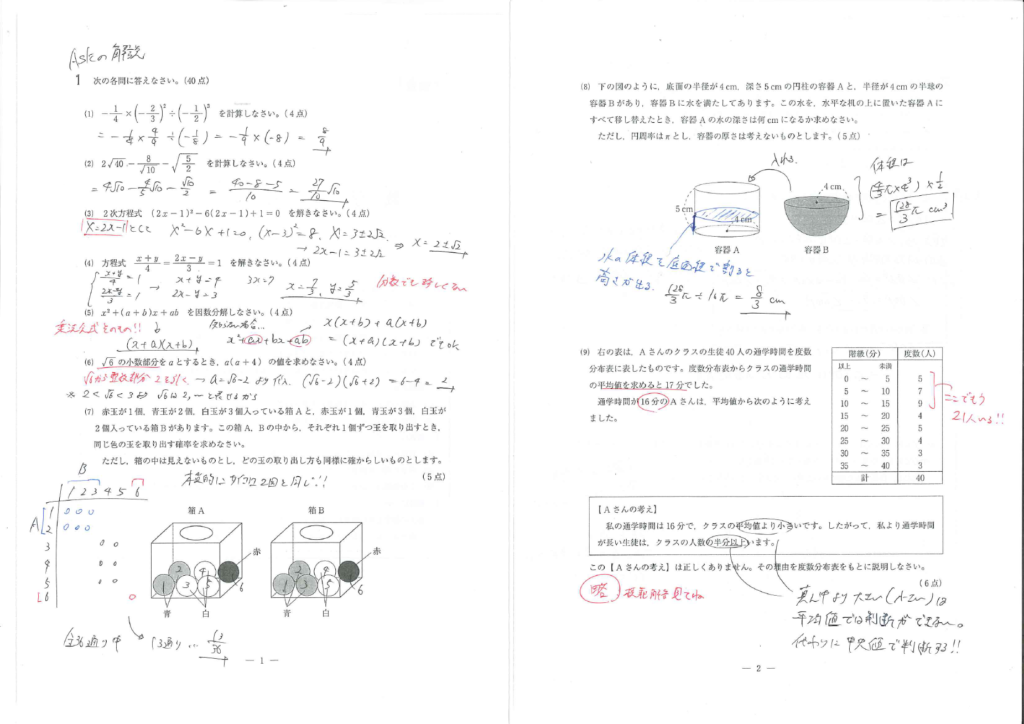 Askの解説
1 次の各問に答えなさい。(40点)
(1) −1/4×(−2/3)²÷(−1/2)³ を計算しなさい。(4点)
(2) 2√40−8/√10−√(5/2) を計算しなさい。(4点)
= 4√10 − 4/5√10 − √10/2 = (40−8−5)/10 = 27/10 √10
(3) 2次方程式 (2x−1)²−6(2x−1)+1=0 を解きなさい。(4点)
X=2x−1として X²−6X+1=0, (X−3)²=8, X=3±2√2
→ 2x−1=3±2√2 ⇒ x=2±√2
(4) 方程式 (x+y)/4=(2x−y)/3=1 を解きなさい。(4点)
(x+y)/4=1 → x+y=4 3x=7
(2x−y)/3=1 2x−y=3 x=7/3, y=5/3
(5) x²+(a+b)x+ab を因数分解しなさい。(4点)
(x+a)(x+b)
x²+ax+bx+ab
x(x+b)+a(x+b)
=(x+a)(x+b) でもok
(6) √6の小数部分をaとするとき、a(a+4) の値を求めなさい。(4点)
√6から整数部分2を引く → a=√6−2 より代入 (√6−2)(√6+2)=6−4=2
(7) 赤玉が1個、青玉が2個、白玉が3個入っている箱Aと、赤玉が1個、青玉が3個、白玉が
2個入っている箱Bがあります。この箱A、Bの中から、それぞれ1個ずつ玉を取り出すとき、
同じ色の玉を取り出す確率を求めなさい。
ただし、箱の中は見えないものとし、どの玉の取り出し方も同様に確からしいものとします。
(5点)
本質的にサイコロ2回と同じ!!
B
1 2 3 4 5 6
A
1 ○ ○ ○
2 ○ ○ ○
3 ○ ○
4 ○ ○
5 ○ ○
6 ○
箱A 箱B
赤 赤
1 2 3 4 5 6
1 2 3 4 5 6
青 白 青 白
全36通り中 13通り… 13/36
― 1 ―
(8) 下の図のように、底面の半径が4cm、深さ5cmの円柱の容器Aと、半径が4cmの半球の
容器Bがあり、容器Bに水を満たしてあります。この水を、水平な机の上に置いた容器Aに
すべて移し替えたとき、容器Aの水の深さは何cmになるか求めなさい。
ただし、円周率はπとし、容器の厚さは考えないものとします。(5点)
入れる
体積は
(4/3π×4³)×1/2
= 128/3 π cm³
5cm
4cm
4cm
容器A 容器B
水の体積を底面積で割ると
高さが出る
128/3π÷16π=8/3 cm
(9) 右の表は、Aさんのクラスの生徒40人の通学時間を度数
分布表に表したものです。度数分布表からクラスの通学時間
の平均値を求めると17分でした。
通学時間が16分のAさんは、平均値から次のように考え
ました。
階級(分) 度数(人)
以上 未満
0 ～ 5 5
5 ～ 10 7
10 ～ 15 9
15 ～ 20 4
20 ～ 25 5
25 ～ 30 4
30 ～ 35 3
35 ～ 40 3
計 40
ここでもう
21人いる!!
【Aさんの考え】
私の通学時間は16分で、クラスの平均値より小さいです。したがって、私より通学時間
が長い生徒は、クラスの人数の半分以上います。
この【Aさんの考え】は正しくありません。その理由を度数分布表をもとに説明しなさい。
(6点)
略 模範解答見てね
真ん中より大きい(小さい)は
平均値では判断ができない。
代わりに中央値で判断する!!
― 2 ―